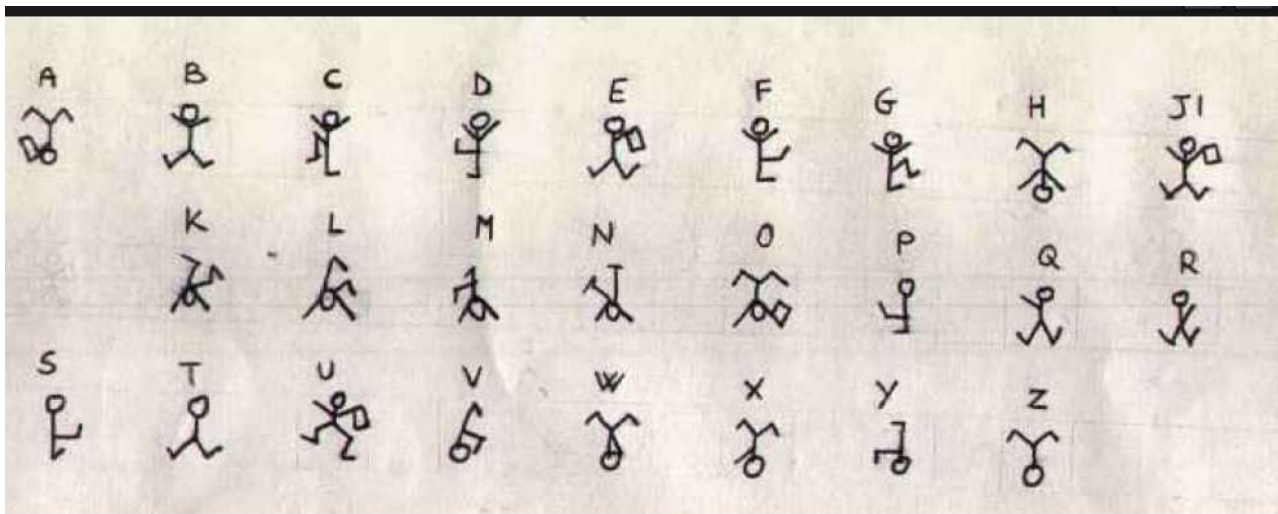 A B C D E F G H JI
K L M N O P Q R
S T U V W X Y Z